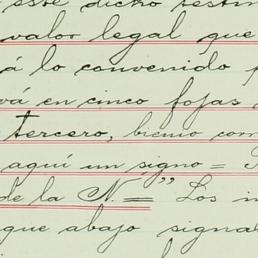 este dicho testim
valor legal que
á lo convenido p
vá en cinco fojas
tercero, bienio com
aquí un signo =
de la N. = " Los in
que abajo signa